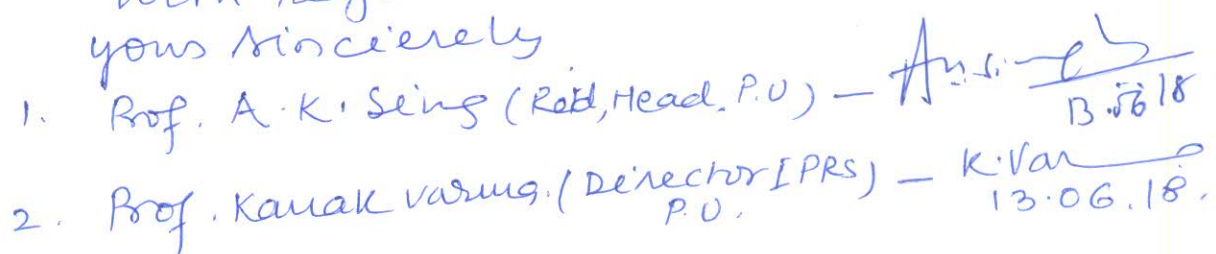 yours sincierely
1. Prof. A.K. Seing (Retd, Head. P.U) –
13.06.18
2. Prof. Kanak varma. (Director IPRS) – K.Var
P.U.
13.06.18.